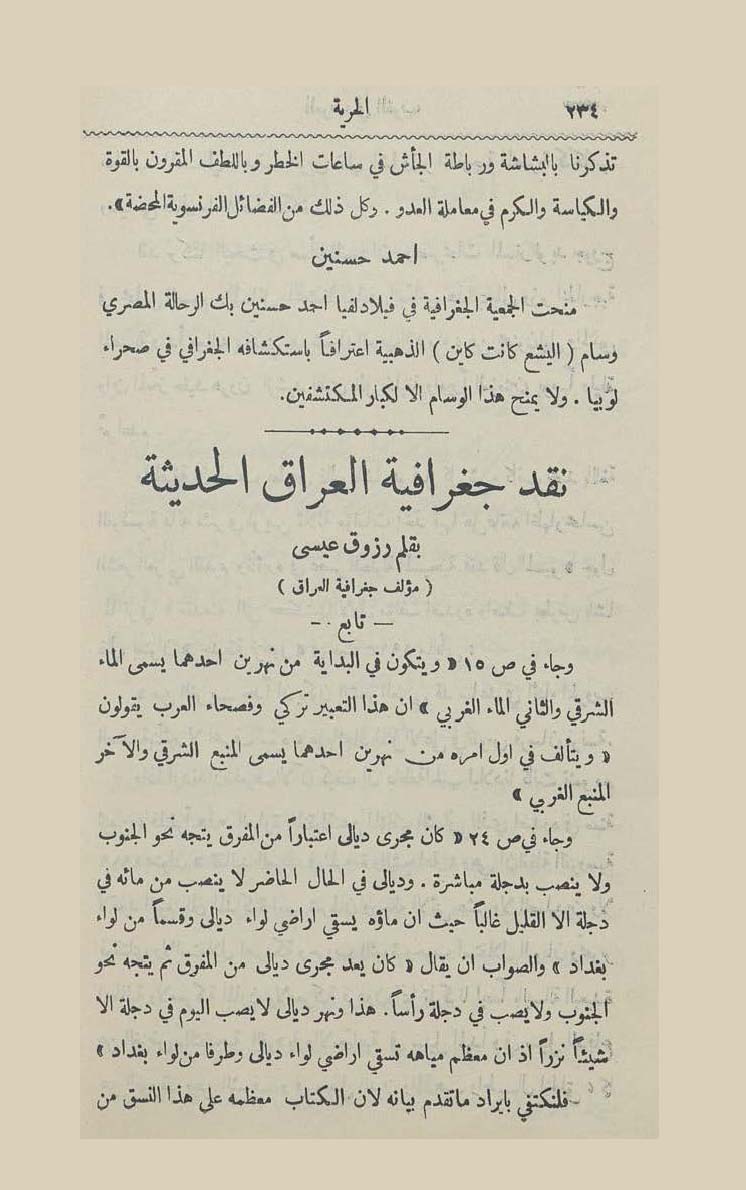 ٢٣٤
الحرية
تذكرنا بالبشاشة ورباطة الجأش في ساعات الخطر وباللطف المقرون بالقوة
والكياسة والكرم في معاملة العدو . وكل ذلك من الفضائل الفرنسوية المحضة» .
احمد حسنين
منحت الجمعية الجغرافية في فيلادلفيا احمد حسنين بك الرحالة المصري
وسام ( اليشع كانت كاين ) الذهبية اعترافاً باستكشافه الجغرافي في صحراء
لوبيا . ولا يمنح هذا الوسام الا لكبار المكتشفين .
نقد جغرافية العراق الحديثة
بقلم رزوق عيسى
( مؤلف جغرافية العراق )
— تابع —
وجاء في ص ١٥ « ويتكون في البداية من نهرين احدهما يسمى الماء
الشرقي والثاني الماء الغربي » ان هذا التعبير تركي وفصحاء العرب يقولون
« ويتألف في اول امره من نهرين احدهما يسمى المنبع الشرقي والآخر
المنبع الغربي »
وجاء في ص ٢٤ « كان مجرى ديالى اعتباراً من المفرق يتجه نحو الجنوب
ولا ينصب بدجلة مباشرة . وديالى في الحال الحاضر لا ينصب من مائه في
دجلة الا القليل غالباً حيث ان ماؤه يسقي اراضي لواء ديالى وقسماً من لواء
بغداد » والصواب ان يقال « كان يعد مجرى ديالى من المفرق ثم يتجه نحو
الجنوب ولا يصب في دجلة رأساً . هذا ونهر ديالى لا يصب اليوم في دجلة الا
شيئاً نزراً اذ ان معظم مياهه تسقي اراضي لواء ديالى وطرفا من لواء بغداد »
فلنكتفي بايراد ماتقدم بيانه لان الكتاب معظمه على هذا النسق من